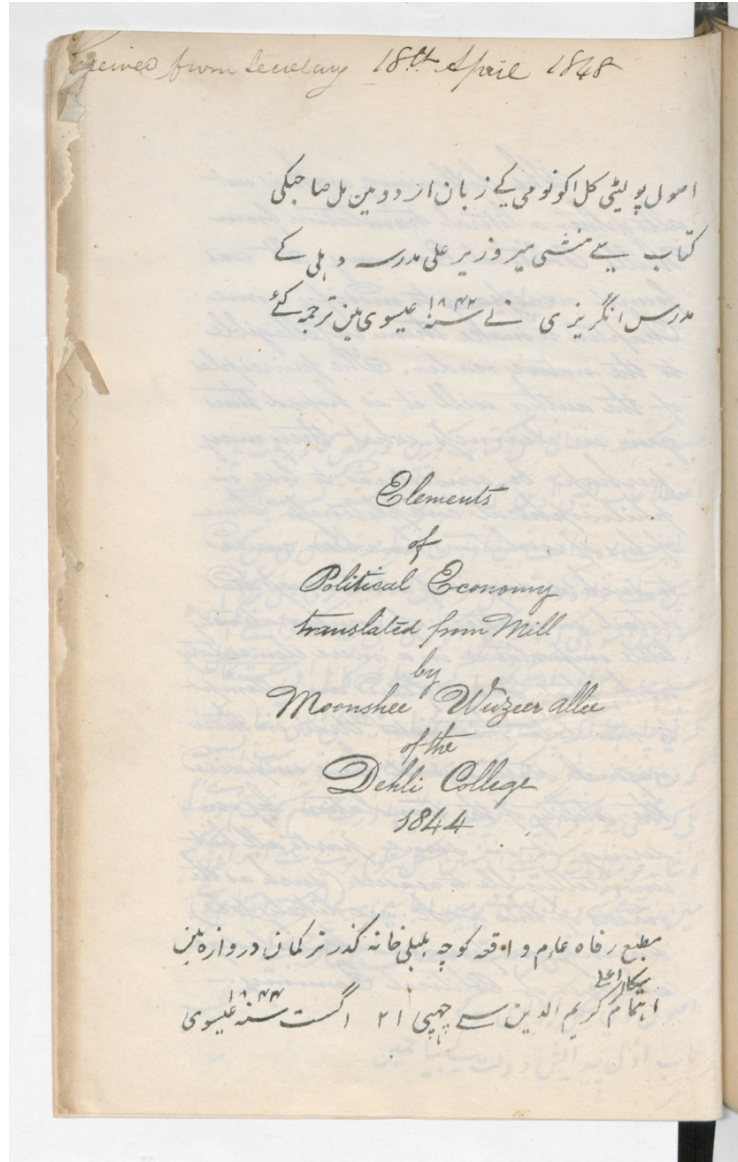 Received from Secretary 18th April 1848
اصول پولیٹی کل اکونومی کے زبان اردو مین مل صاحبکی
کتاب سے منشی میر وزیر علی مدرسہ دہلی کے
مدرس انگریزی نے سنہ ۱۸۴۴ عیسوی مین ترجمہ کئے
Elements
of
Political Economy
translated from Mill
by
Moonshee Wuzeer Allee
of the
Dehli College
1844
مطبع رفاہ عام واقعہ کوچہ بلبلی خانہ گذر ترکمان دروازہ مین
اہتمام کریم الدین سے چھپی ۲۱ اگست سنہ ۱۸۴۴ عیسوی